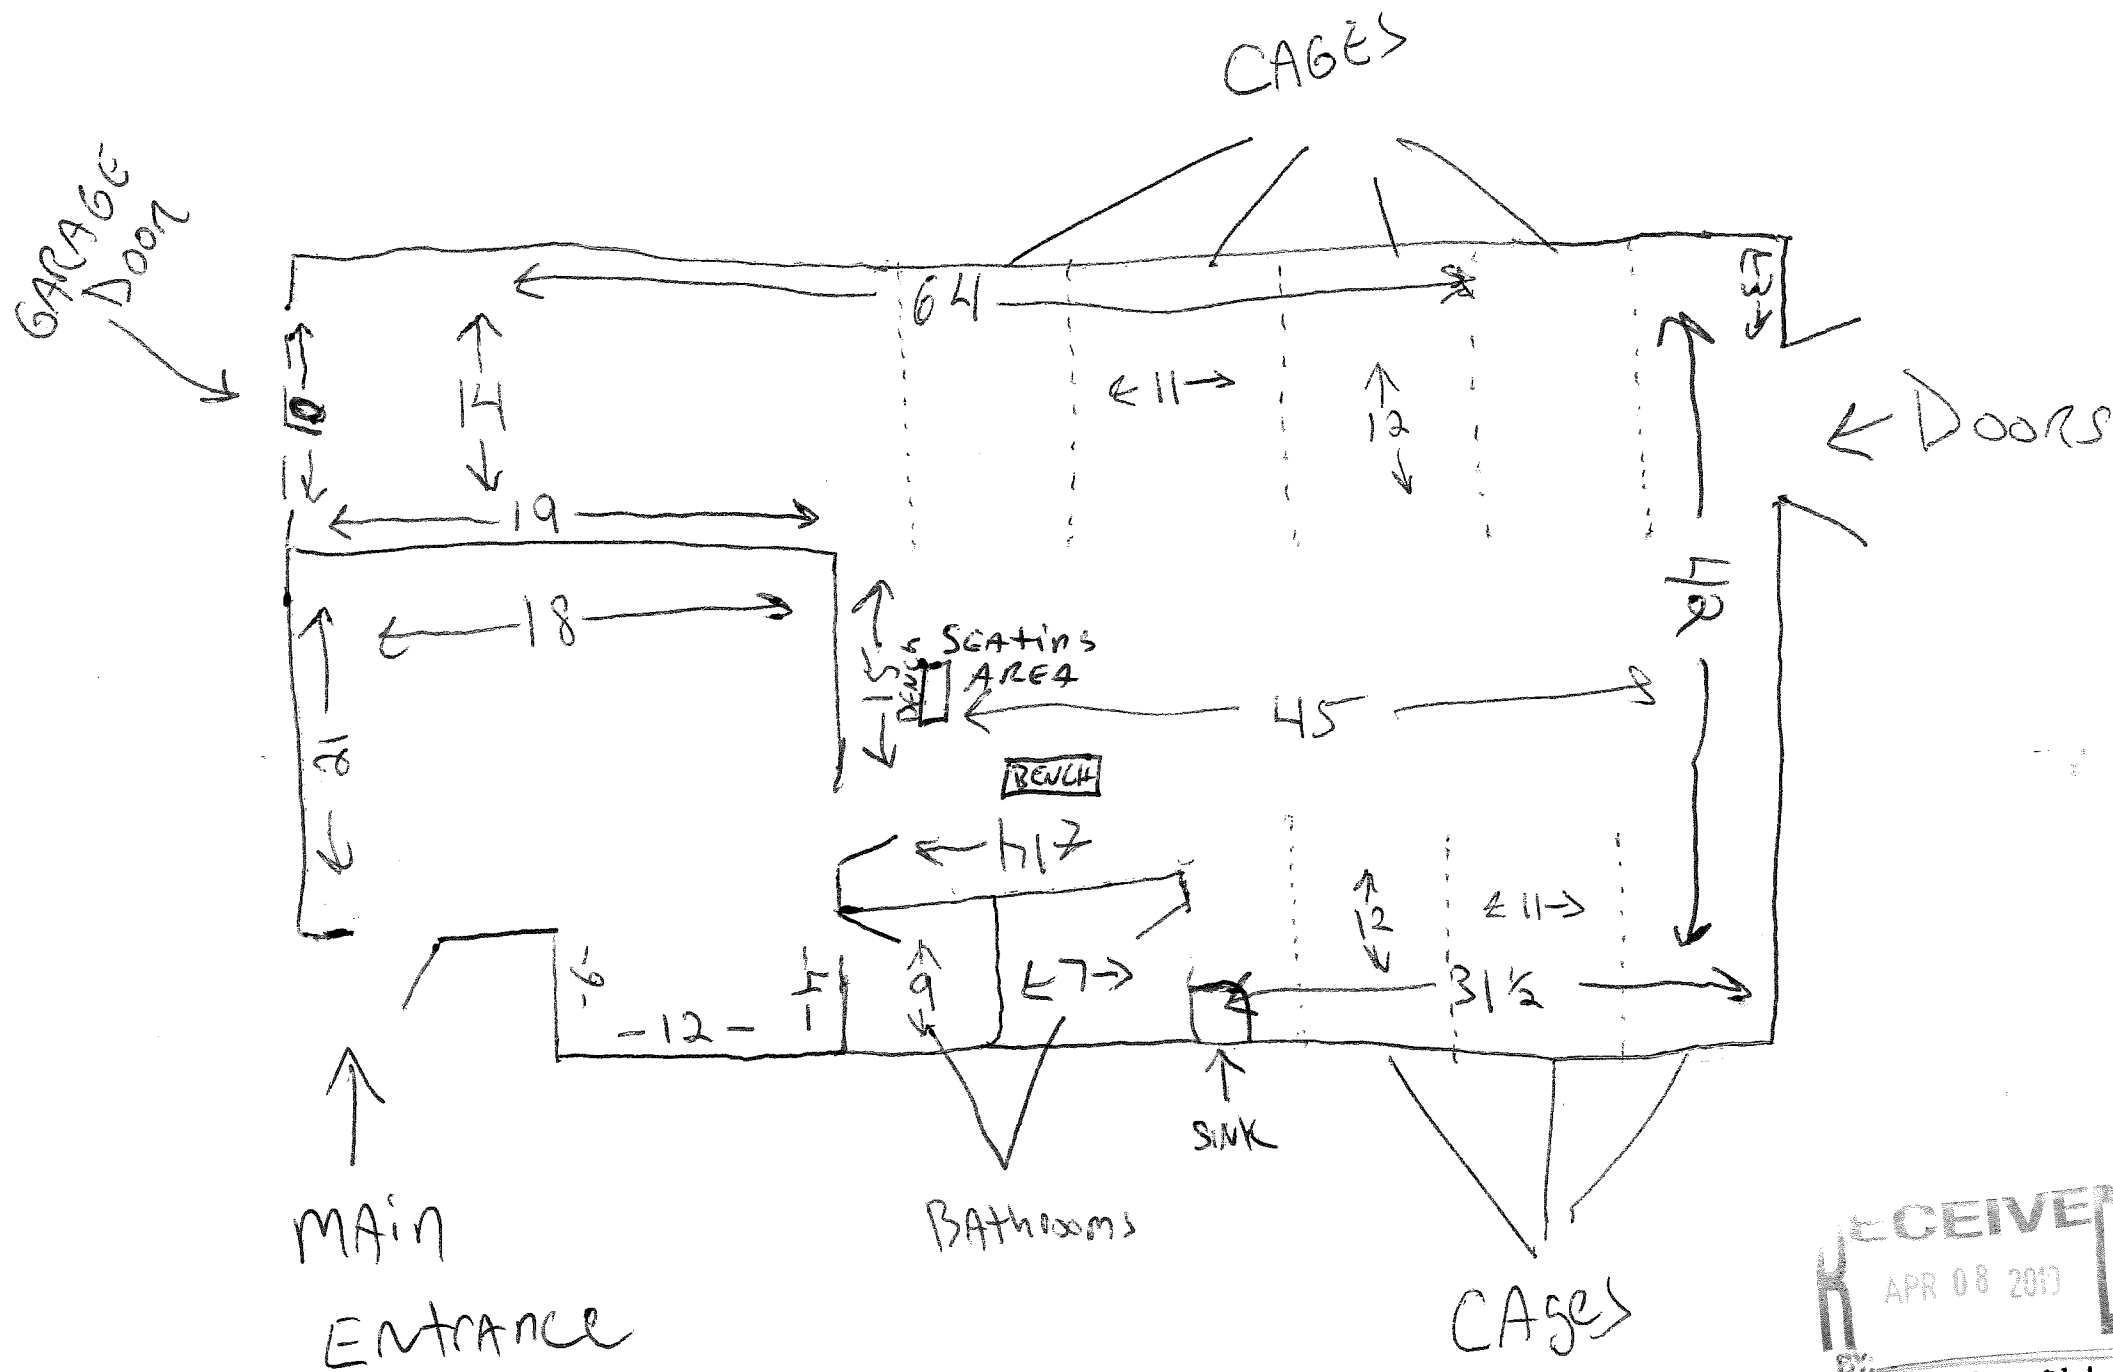 CAGES
GARAGE
DOOR
64
3
10
14
11
12
← DOORS
19
18
15
BENCH
SEATING
AREA
45
21
BENCH
12
11
-6-
9
7
31 ½
-12-
SINK
MAIN
ENTRANCE
BATHROOMS
CAGES
RECEIVED
APR 08
BY: